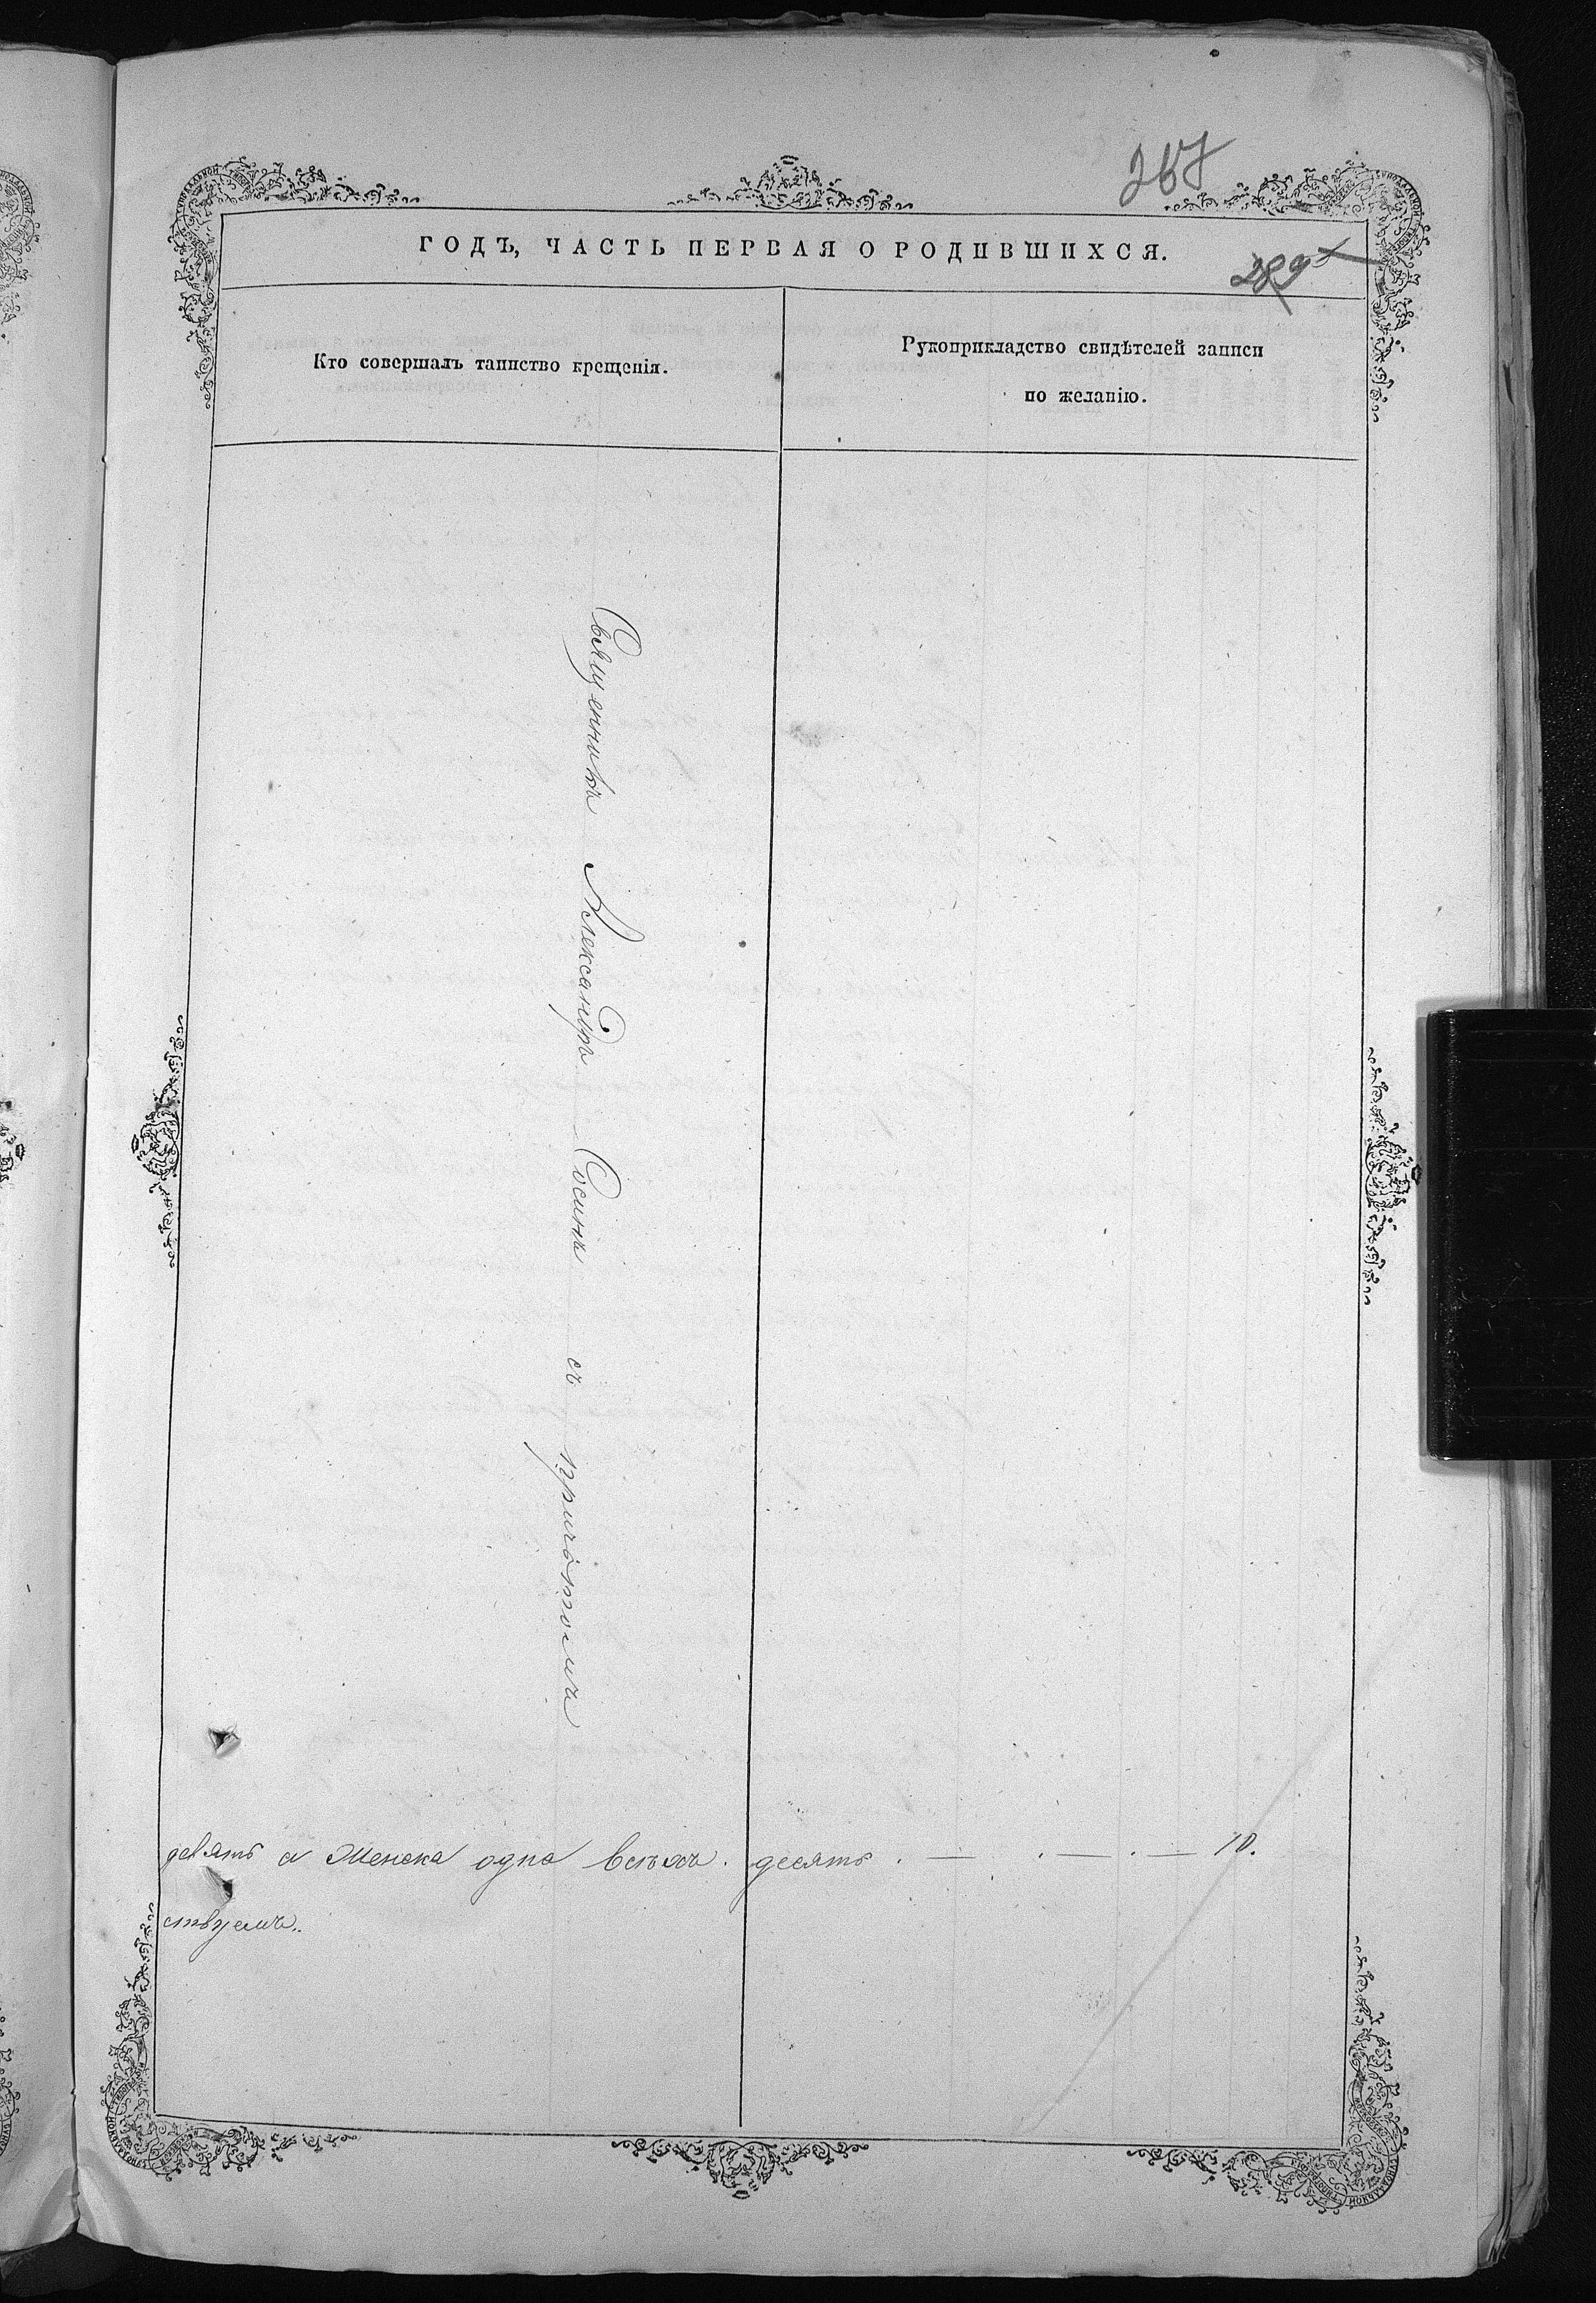 267
ГОДЪ, ЧАСТЬ ПЕРВАЯ О РОДИВШИХСЯ.
289
Кто совершалъ таинство крещенія.
Рукоприкладство свидѣтелей записи
по желанію.
Священникъ Александръ Сосинъ съ причтомъ
девять а женска одна всѣхъ. десять . — . — . — 10.
ствуемъ..